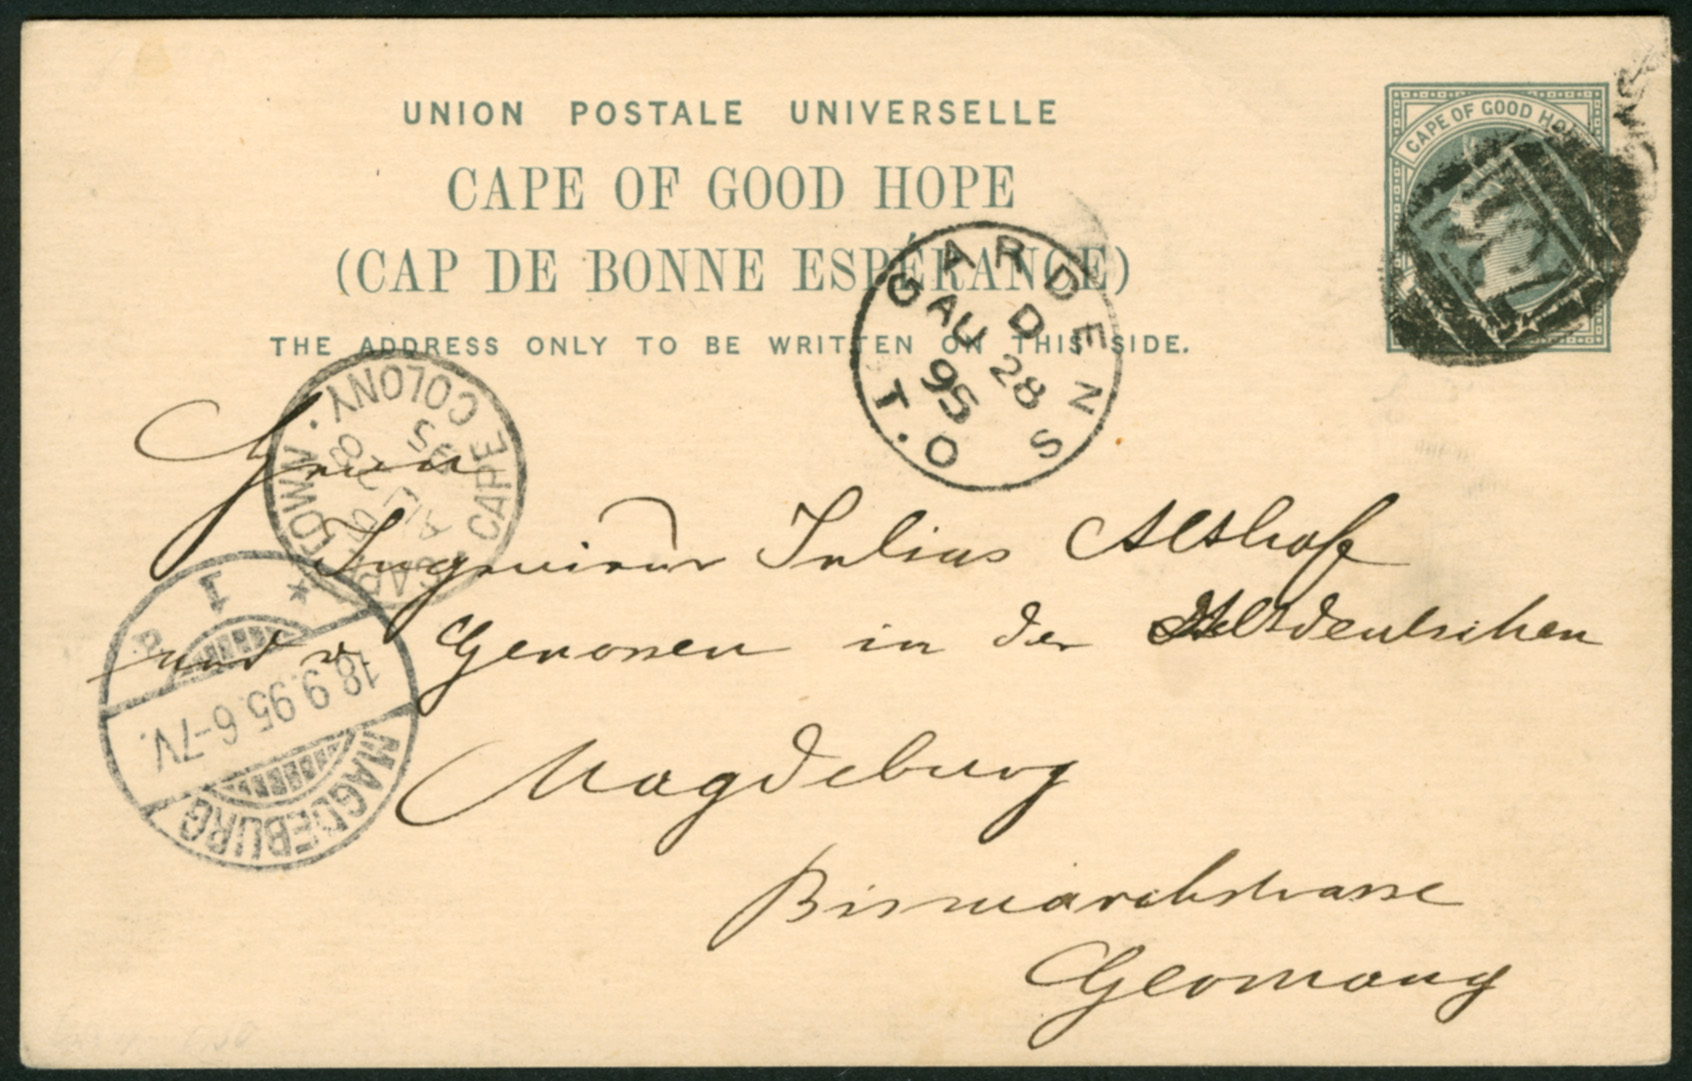 UNION POSTALE UNIVERSELLE
CAPE OF GOOD HOPE
(CAP DE BONNE ESPÉRANCE)
THE ADDRESS ONLY TO BE WRITTEN ON THIS SIDE.
CAPE OF GOOD HOPE
GARDENS T.O.
D
AU 28
95
CAPE TOWN. CAPE COLONY.
AU 28
95
MAGDEBURG
18.9.95.6-7V.
* 1 a
Herrn
Ingenieur Julius Althoff
und Genossen in der Altdeutschen
Magdeburg
Bismarckstrasse
Germany